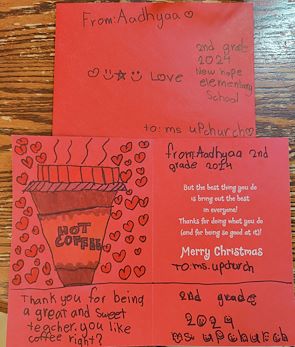 From: Aadhyaa
2nd grade
2024
New hope
elementary
School
LOVE
to: ms upchurch
HOT
COFFEE
from: Aadhyaa 2nd
grade 2024
But the best thing you do
is bring out the best
in everyone!
Thanks for doing what you do
(and for being so good at it)!
Merry Christmas
To: ms. upchurch
Thank you for being
a great and sweet
teacher. you like
coffee right?
2nd grade
2024
ms upchurch